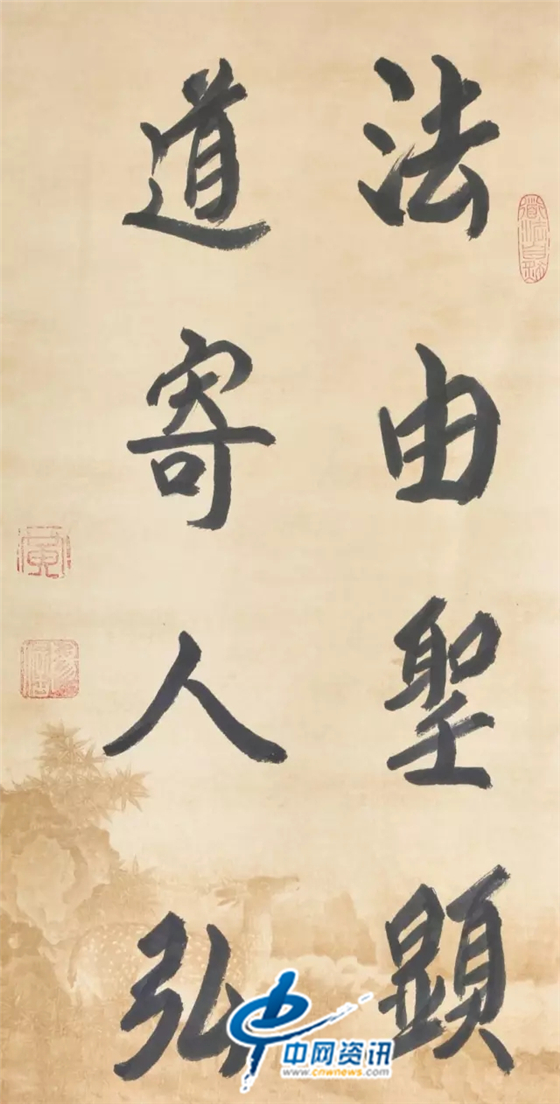 法由聖顕
道寄人弘
中网资讯
www.cnwnews.com